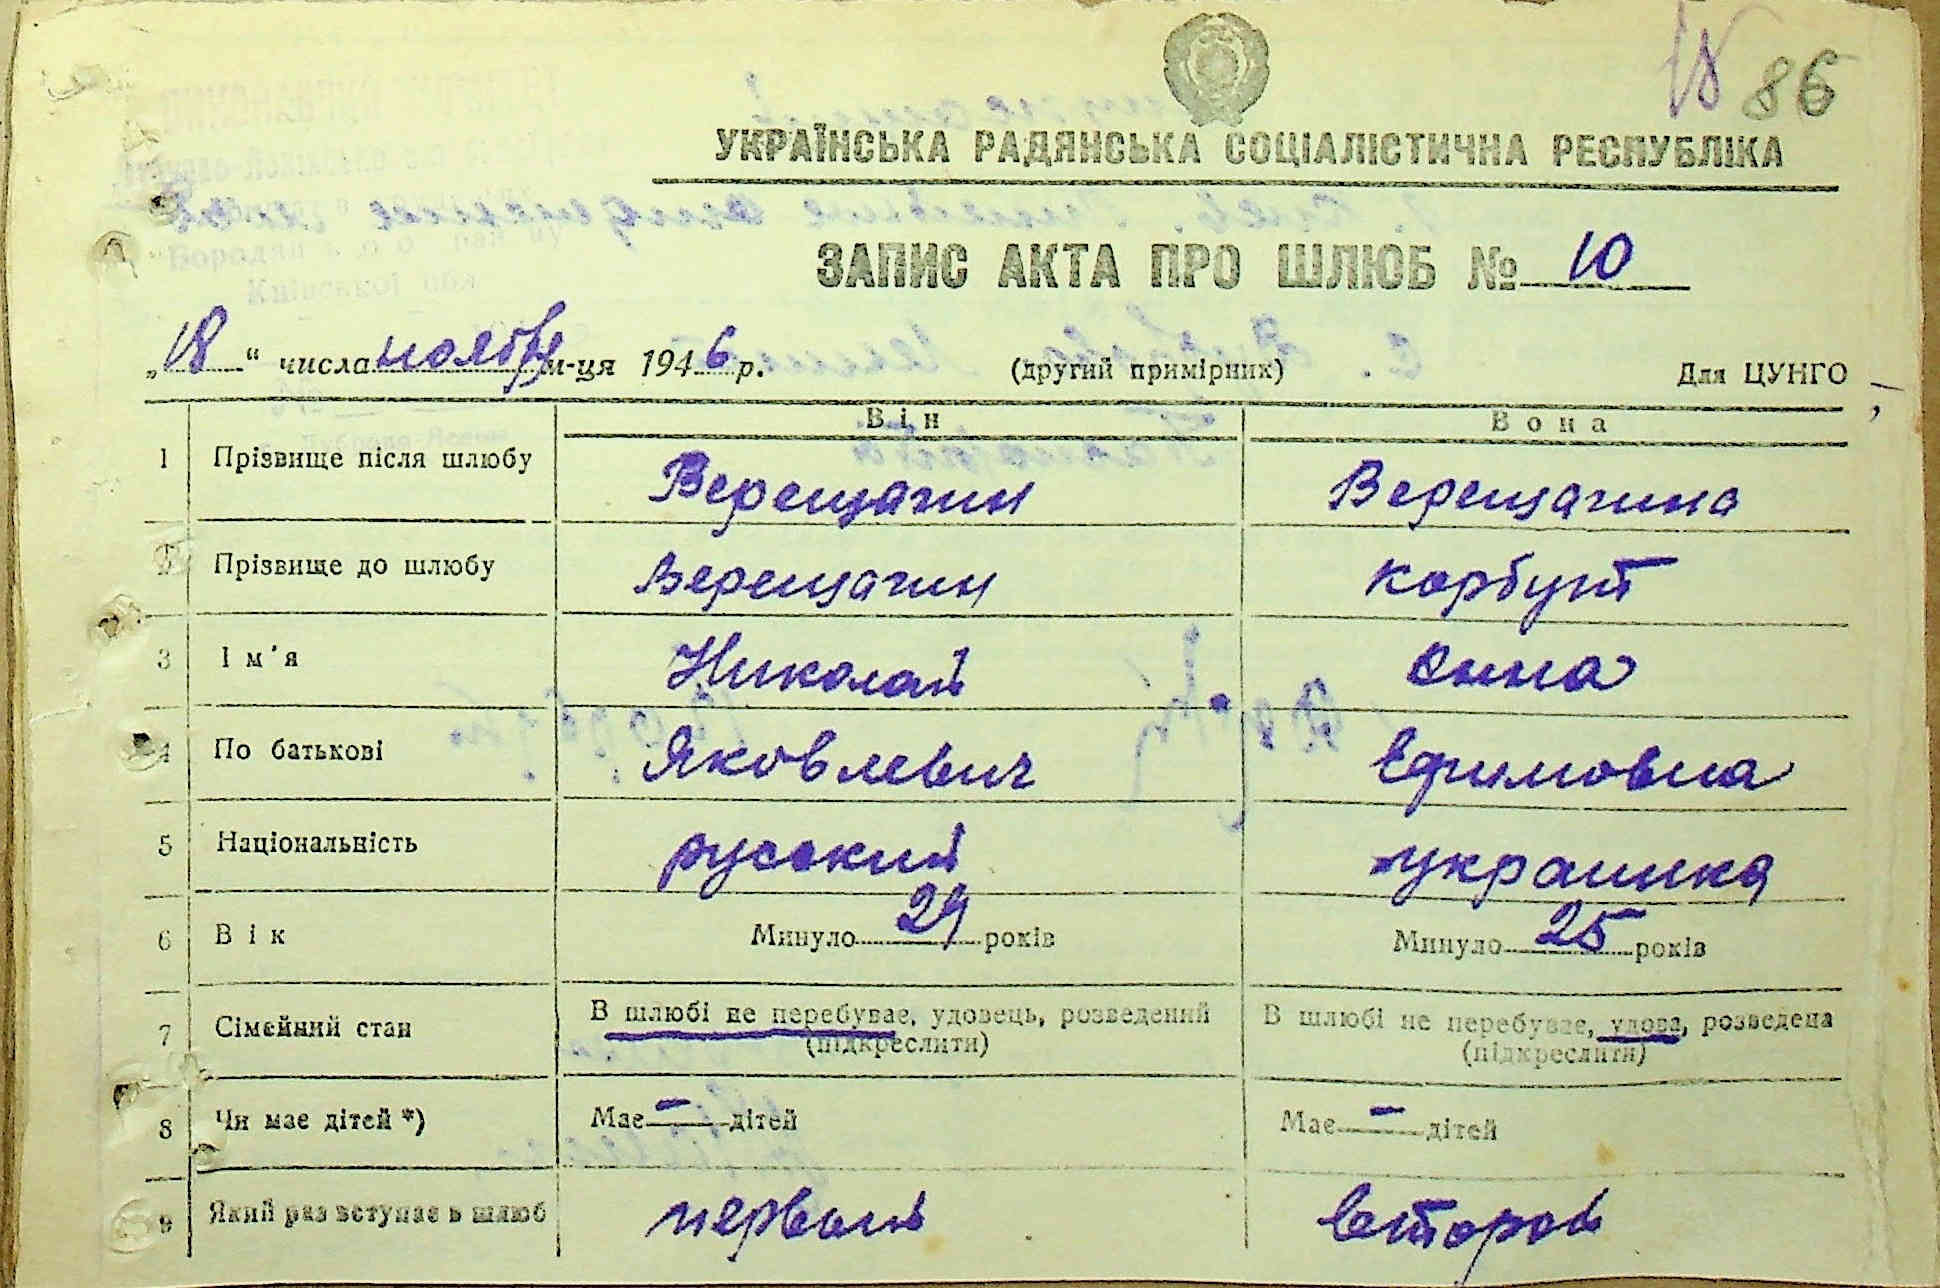 18 86
УКРАЇНСЬКА РАДЯНСЬКА СОЦІАЛІСТИЧНА РЕСПУБЛІКА
ЗАПИС АКТА ПРО ШЛЮБ № 10
„18“ числа ноября м-ця 1946 р. (другий примірник) Для ЦУНГО
Він Вона
1 Прізвище після шлюбу Верещагин Верещагина
2 Прізвище до шлюбу Верещагин Корбут
3 Ім'я Николай Анна
4 По батькові Яковлевич Ефимовна
5 Національність русский украинка
6 Вік Минуло 24 років Минуло 25 років
7 Сімейний стан В шлюбі не перебуває, удовець, розведений В шлюбі не перебуває, удова, розведена
(підкреслити) (підкреслити)
8 Чи має дітей *) Має – дітей Має – дітей
9 Який раз вступає в шлюб первый второй